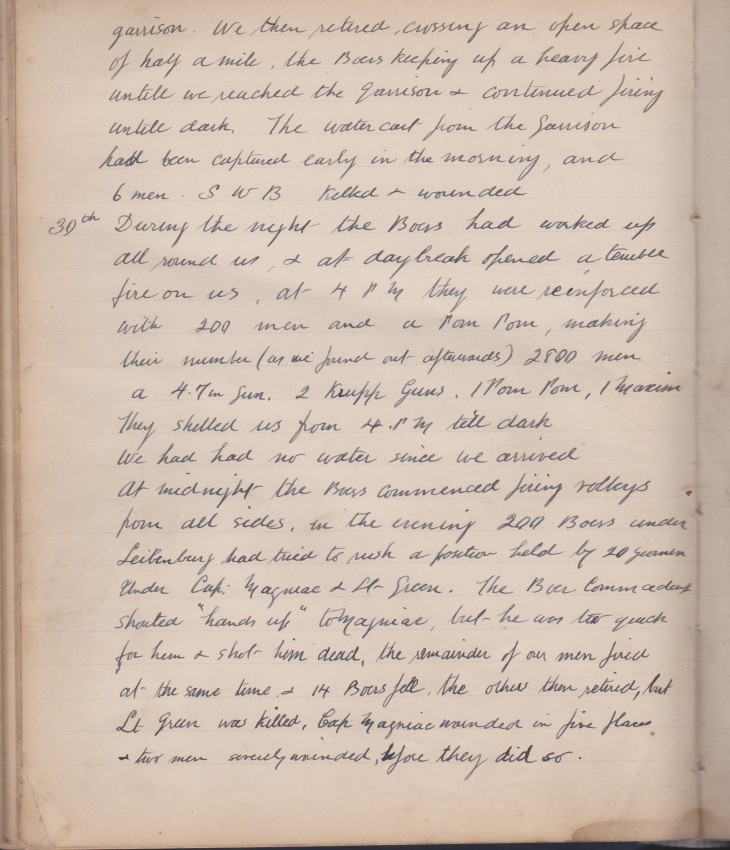 garrison. We then retired, crossing an open space
of half a mile, the Boers keeping up a heavy fire
untill we reached the Garrison & continued firing
untill dark. The water cart from the Garrison
had been captured early in the morning, and
6 men. S W B killed & wounded
30th During the night the Boers had worked up
all round us, & at daybreak opened a terrible
fire on us, at 4 PM they were reinforced
with 200 men and a Pom Pom, making
their number (as we found out afterwards) 2800 men
a 4.7 in Gun. 2 Krupp Guns. 1 Pom Pom, 1 Maxim
They shelled us from 4.PM till dark
We had had no water since we arrived
At midnight the Boers commenced firing volleys
from all sides, in the evening 200 Boers under
Leibenburg had tried to rush a position held by 20 yeomen
Under Cap: Magniac & Lt Green. The Boer Commandant
shouted "hands up" to Magniac, but he was too quick
for him & shot him dead, the remainder of our men fired
at the same time & 14 Boers fell. the others then retired, but
Lt Green was killed, Cap Magniac wounded in five places
& two men severely wounded, before they did so.